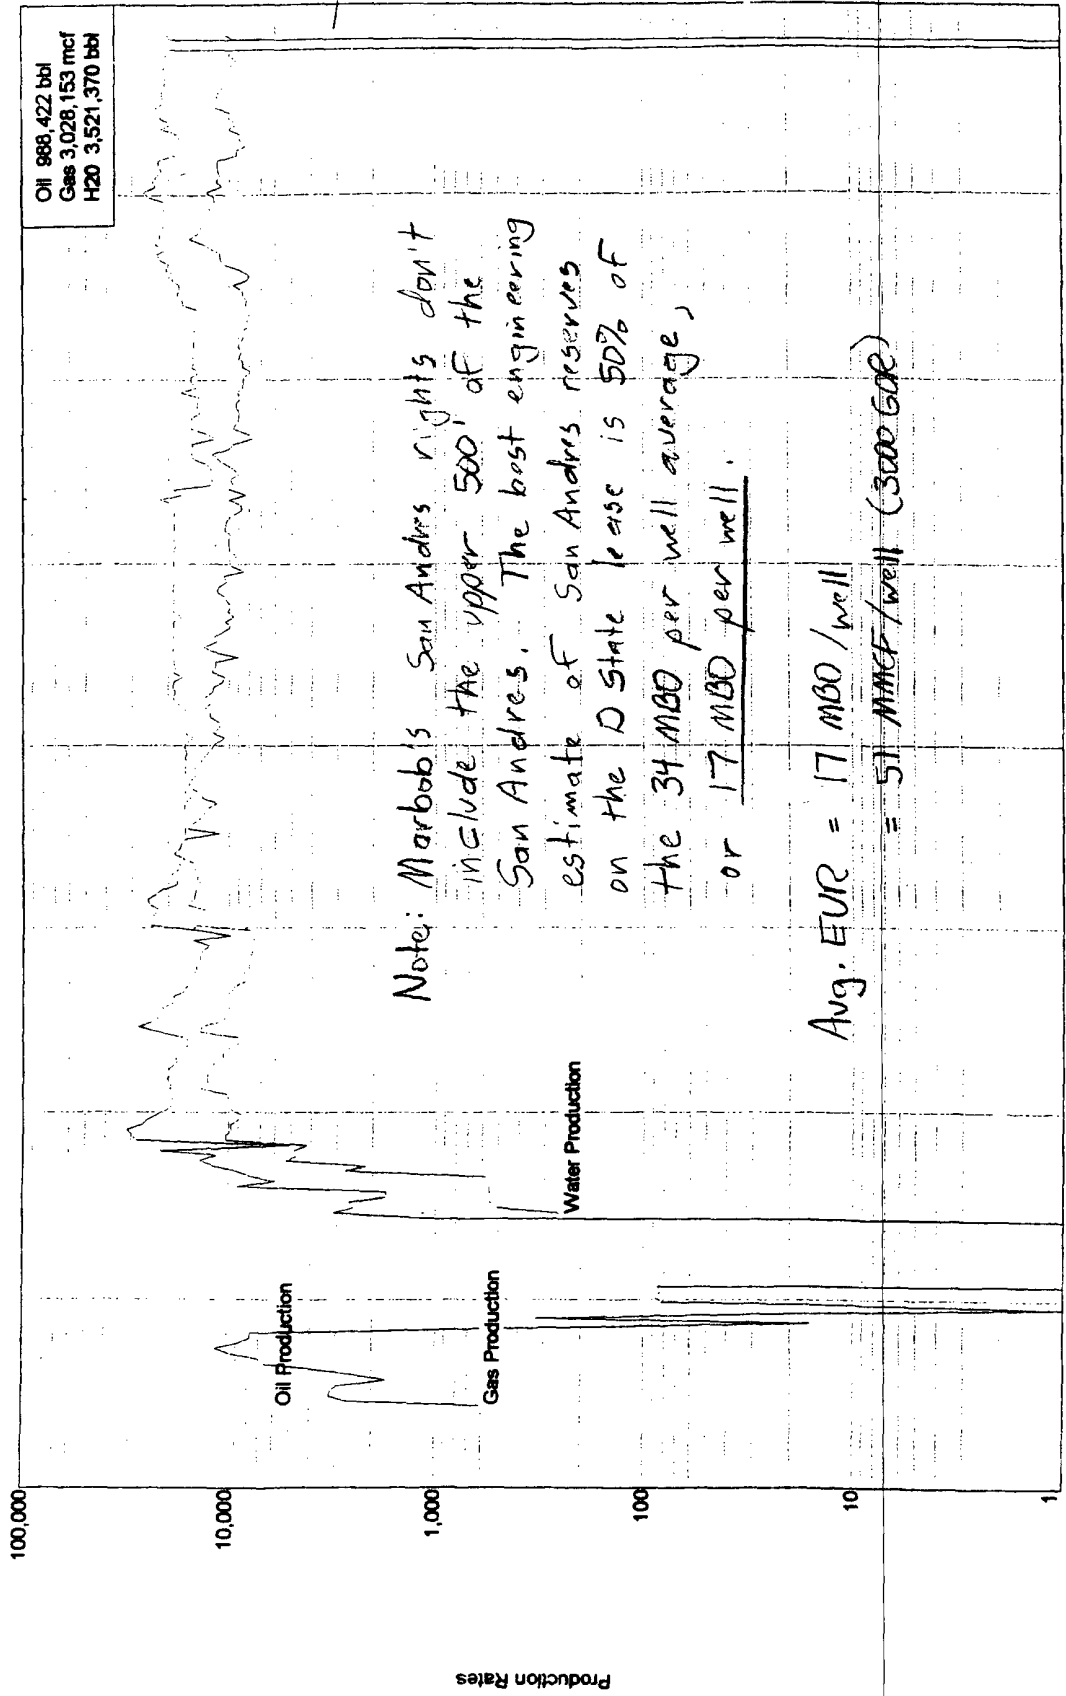 Oil 988,422 bbl
Gas 3,028,153 mcf
H20 3,521,370 bbl
100,000
10,000
1,000
100
10
1
Production Rates
Oil Production
Gas Production
Water Production
Note: Marbob's San Andres rights don't
include the upper 500' of the
San Andres. The best engineering
estimate of San Andres reserves
on the D State lease is 50% of
the 34 MBO per well average,
or 17 MBO per well.
Avg. EUR = 17 MBO/well
= 51 MMCF/well (3000 GOR)